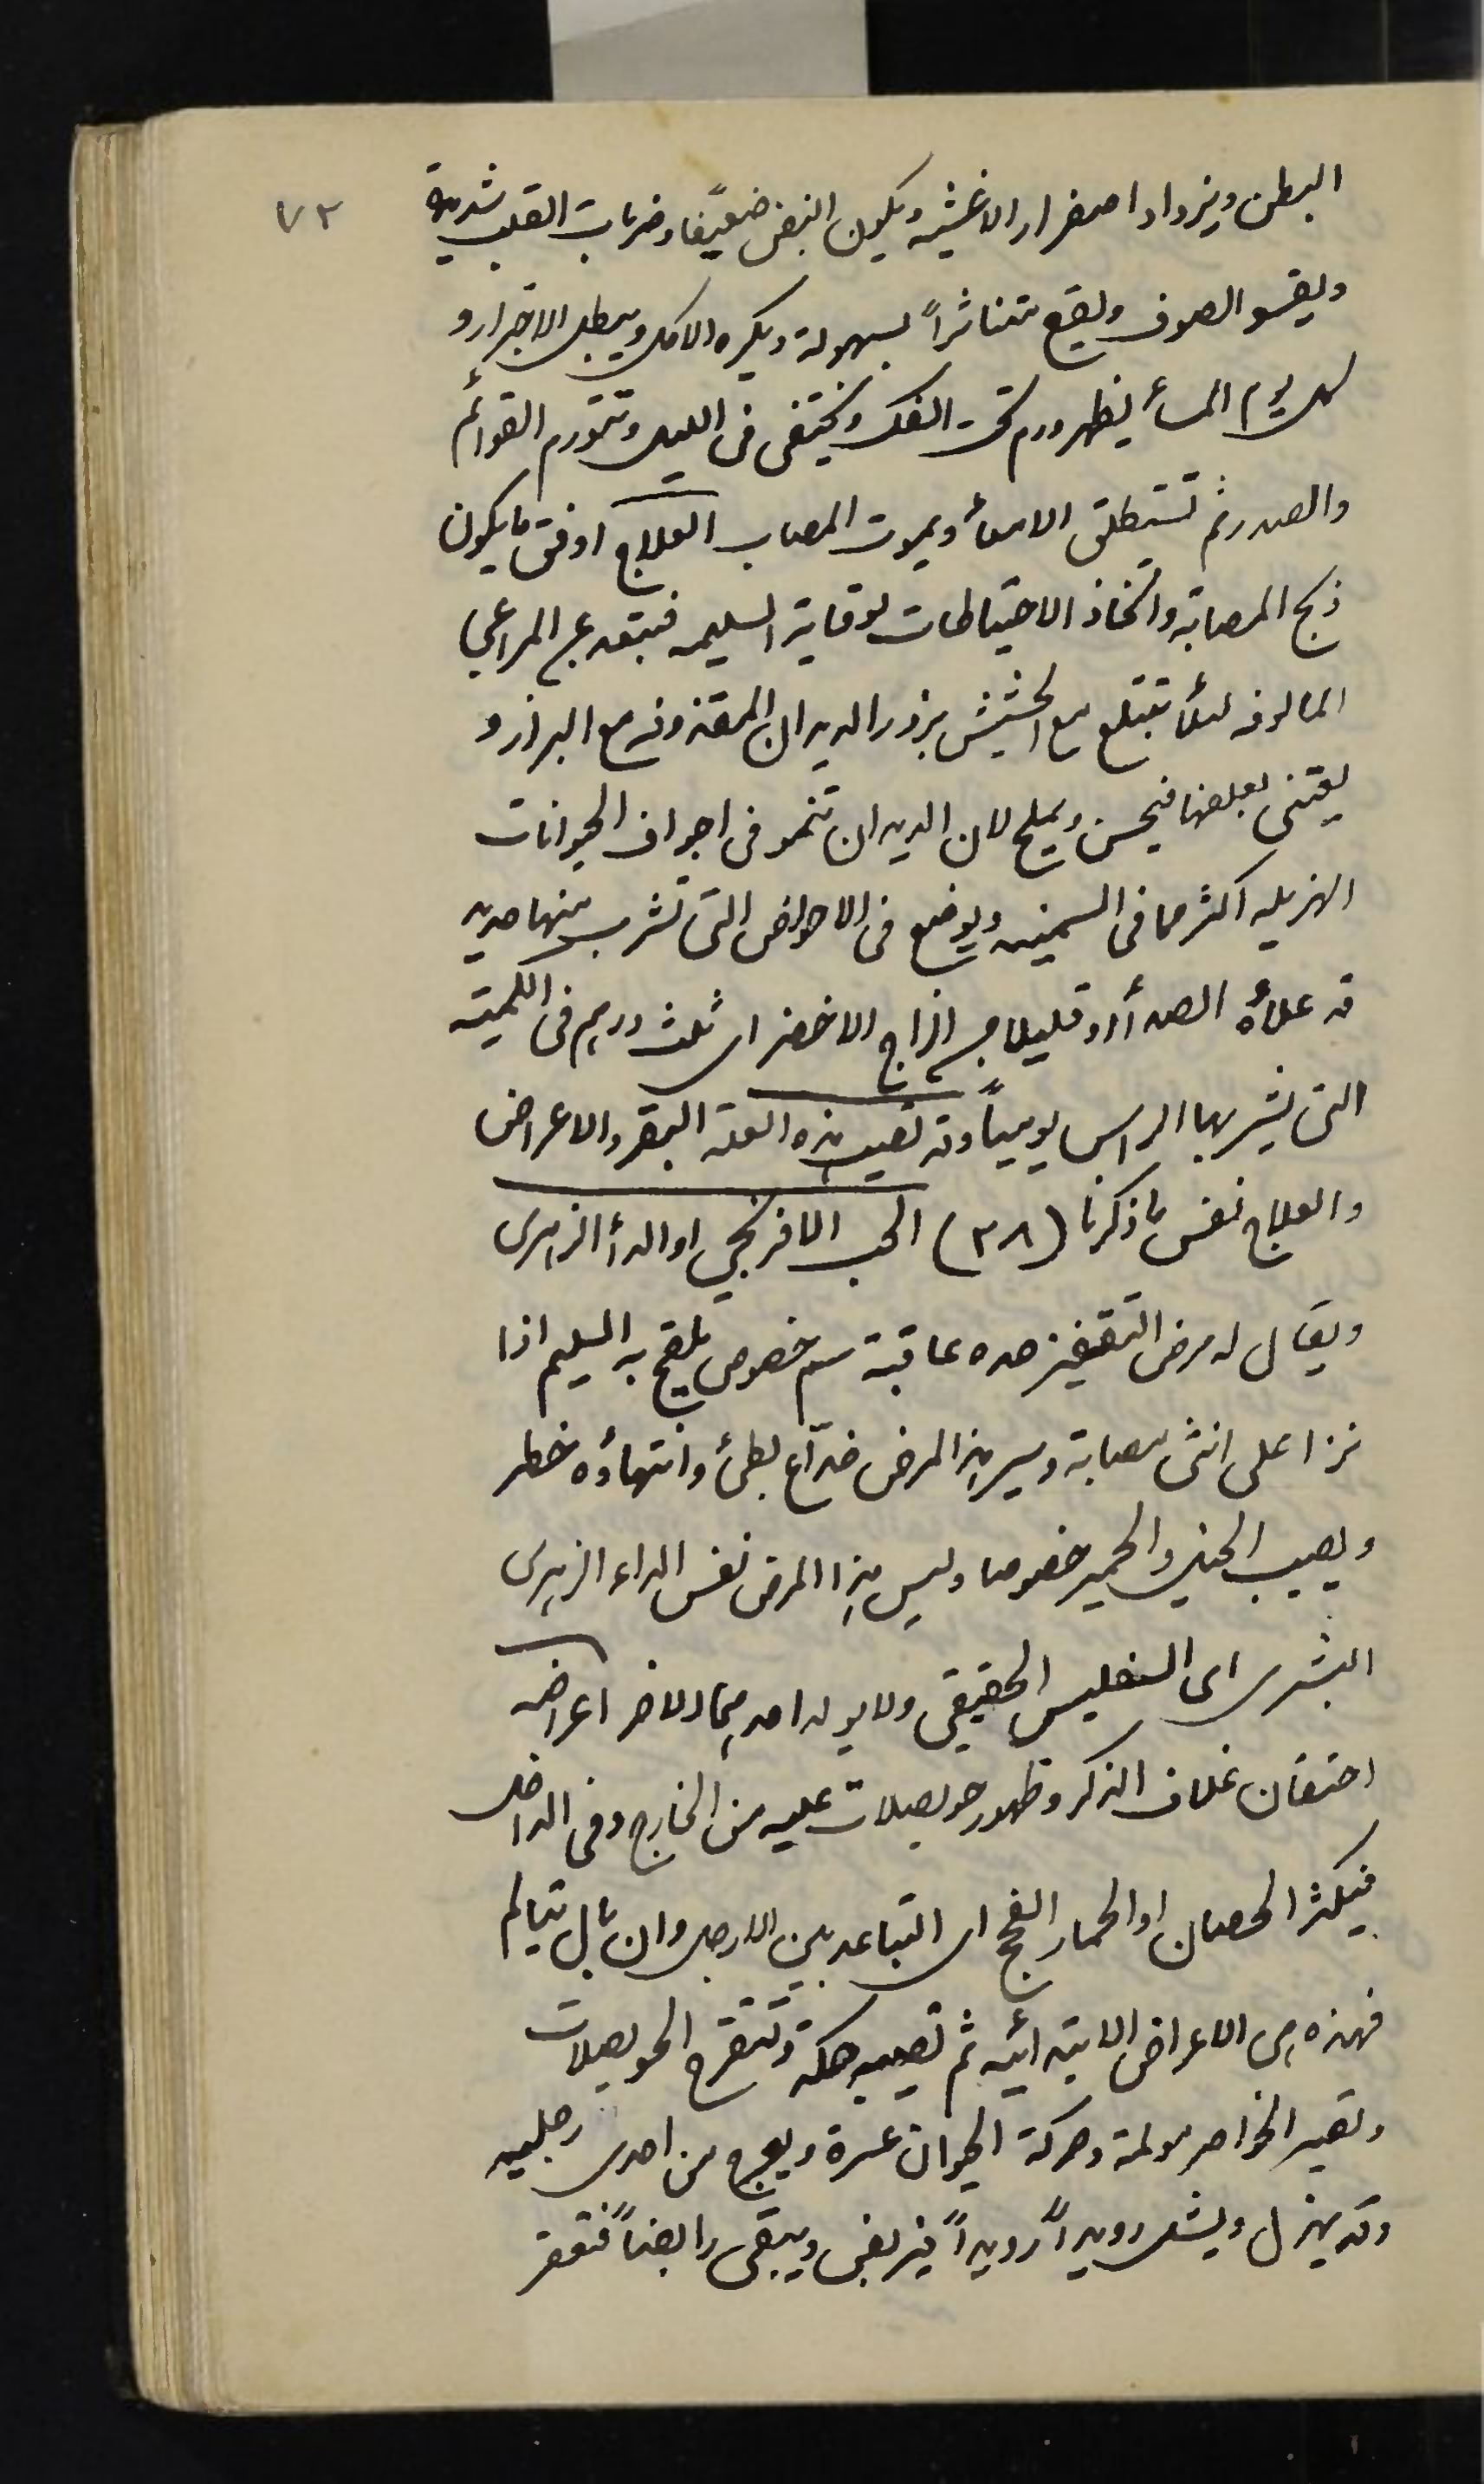 ٧٢
البطن ويزداد اصفرار الاغشيه ويكون النبض ضعيفًا وضربات القلب شديدة
ويقسو الصوف ويقع متناثرًا بسهولة ويكره الاكل ويبطل الاجترار و
كل يوم المسأ يظهر ورم تحت الفك ويختفى فى الليل وتتورم القوائم
والصدر ثم تستطلق الامعأ ويموت المصاب العلاج اوفق ما يكون
ذبح المصابة واتخاذ الاحتياطات لوقاية السليمه فتبتعد عن المراعي
المالوفه لئلا تبتلع مع الحشيش بزور الديدان المقذوفه مع البراز و
يعتنى بعلفها فيحسن ويملح لان الديدان تنمو فى اجواف الحيوانات
الهزيله اكثر مما فى السمينه ويوضع فى الاحواض التى تشرب منها حديد
قد علاه الصدأ او قليلا من الزاج الاخضر اى ثلث درهم فى الكميّه
التى يشربها الراس يوميًا وقد تصيب هذه العلة البقر والاعراض
والعلاج نفس ما ذكرنا (٣٨) الحب الافرنجي او الدأ الزهرى
ويقال له مرض التقفيز هده عاقبة سم خصوصى يلقح به السليم اذا
نزا على انثى مصابة وسير هذا المرض خدّاع بطئ وانتهاؤه خطر
ويصيب الخيل والحمير خصوصا وليس هذا المرض نفس الداء الزهرى
البشرى اى السفليس الحقيقى ولا يولد احدهما الاخر اعراضه
احتقان غلاف الذكر وظهور حويصلات عليه من الخارج وفى الداخل
فيكثر الحصان او الحمار الفحج اى التباعد بين الارجل وان بال يتالم
فهذه هى الاعراض الابتدائيه ثم تصيبه حكة وتتقرح الحويصلات
وتصير الخواصر مولمة وحركة الحيوان عسرة ويعرج من احدى رجليه
وقد يهزل ويشل رويدًا رويدًا فيربض ويبقى رابضًا فتعقر